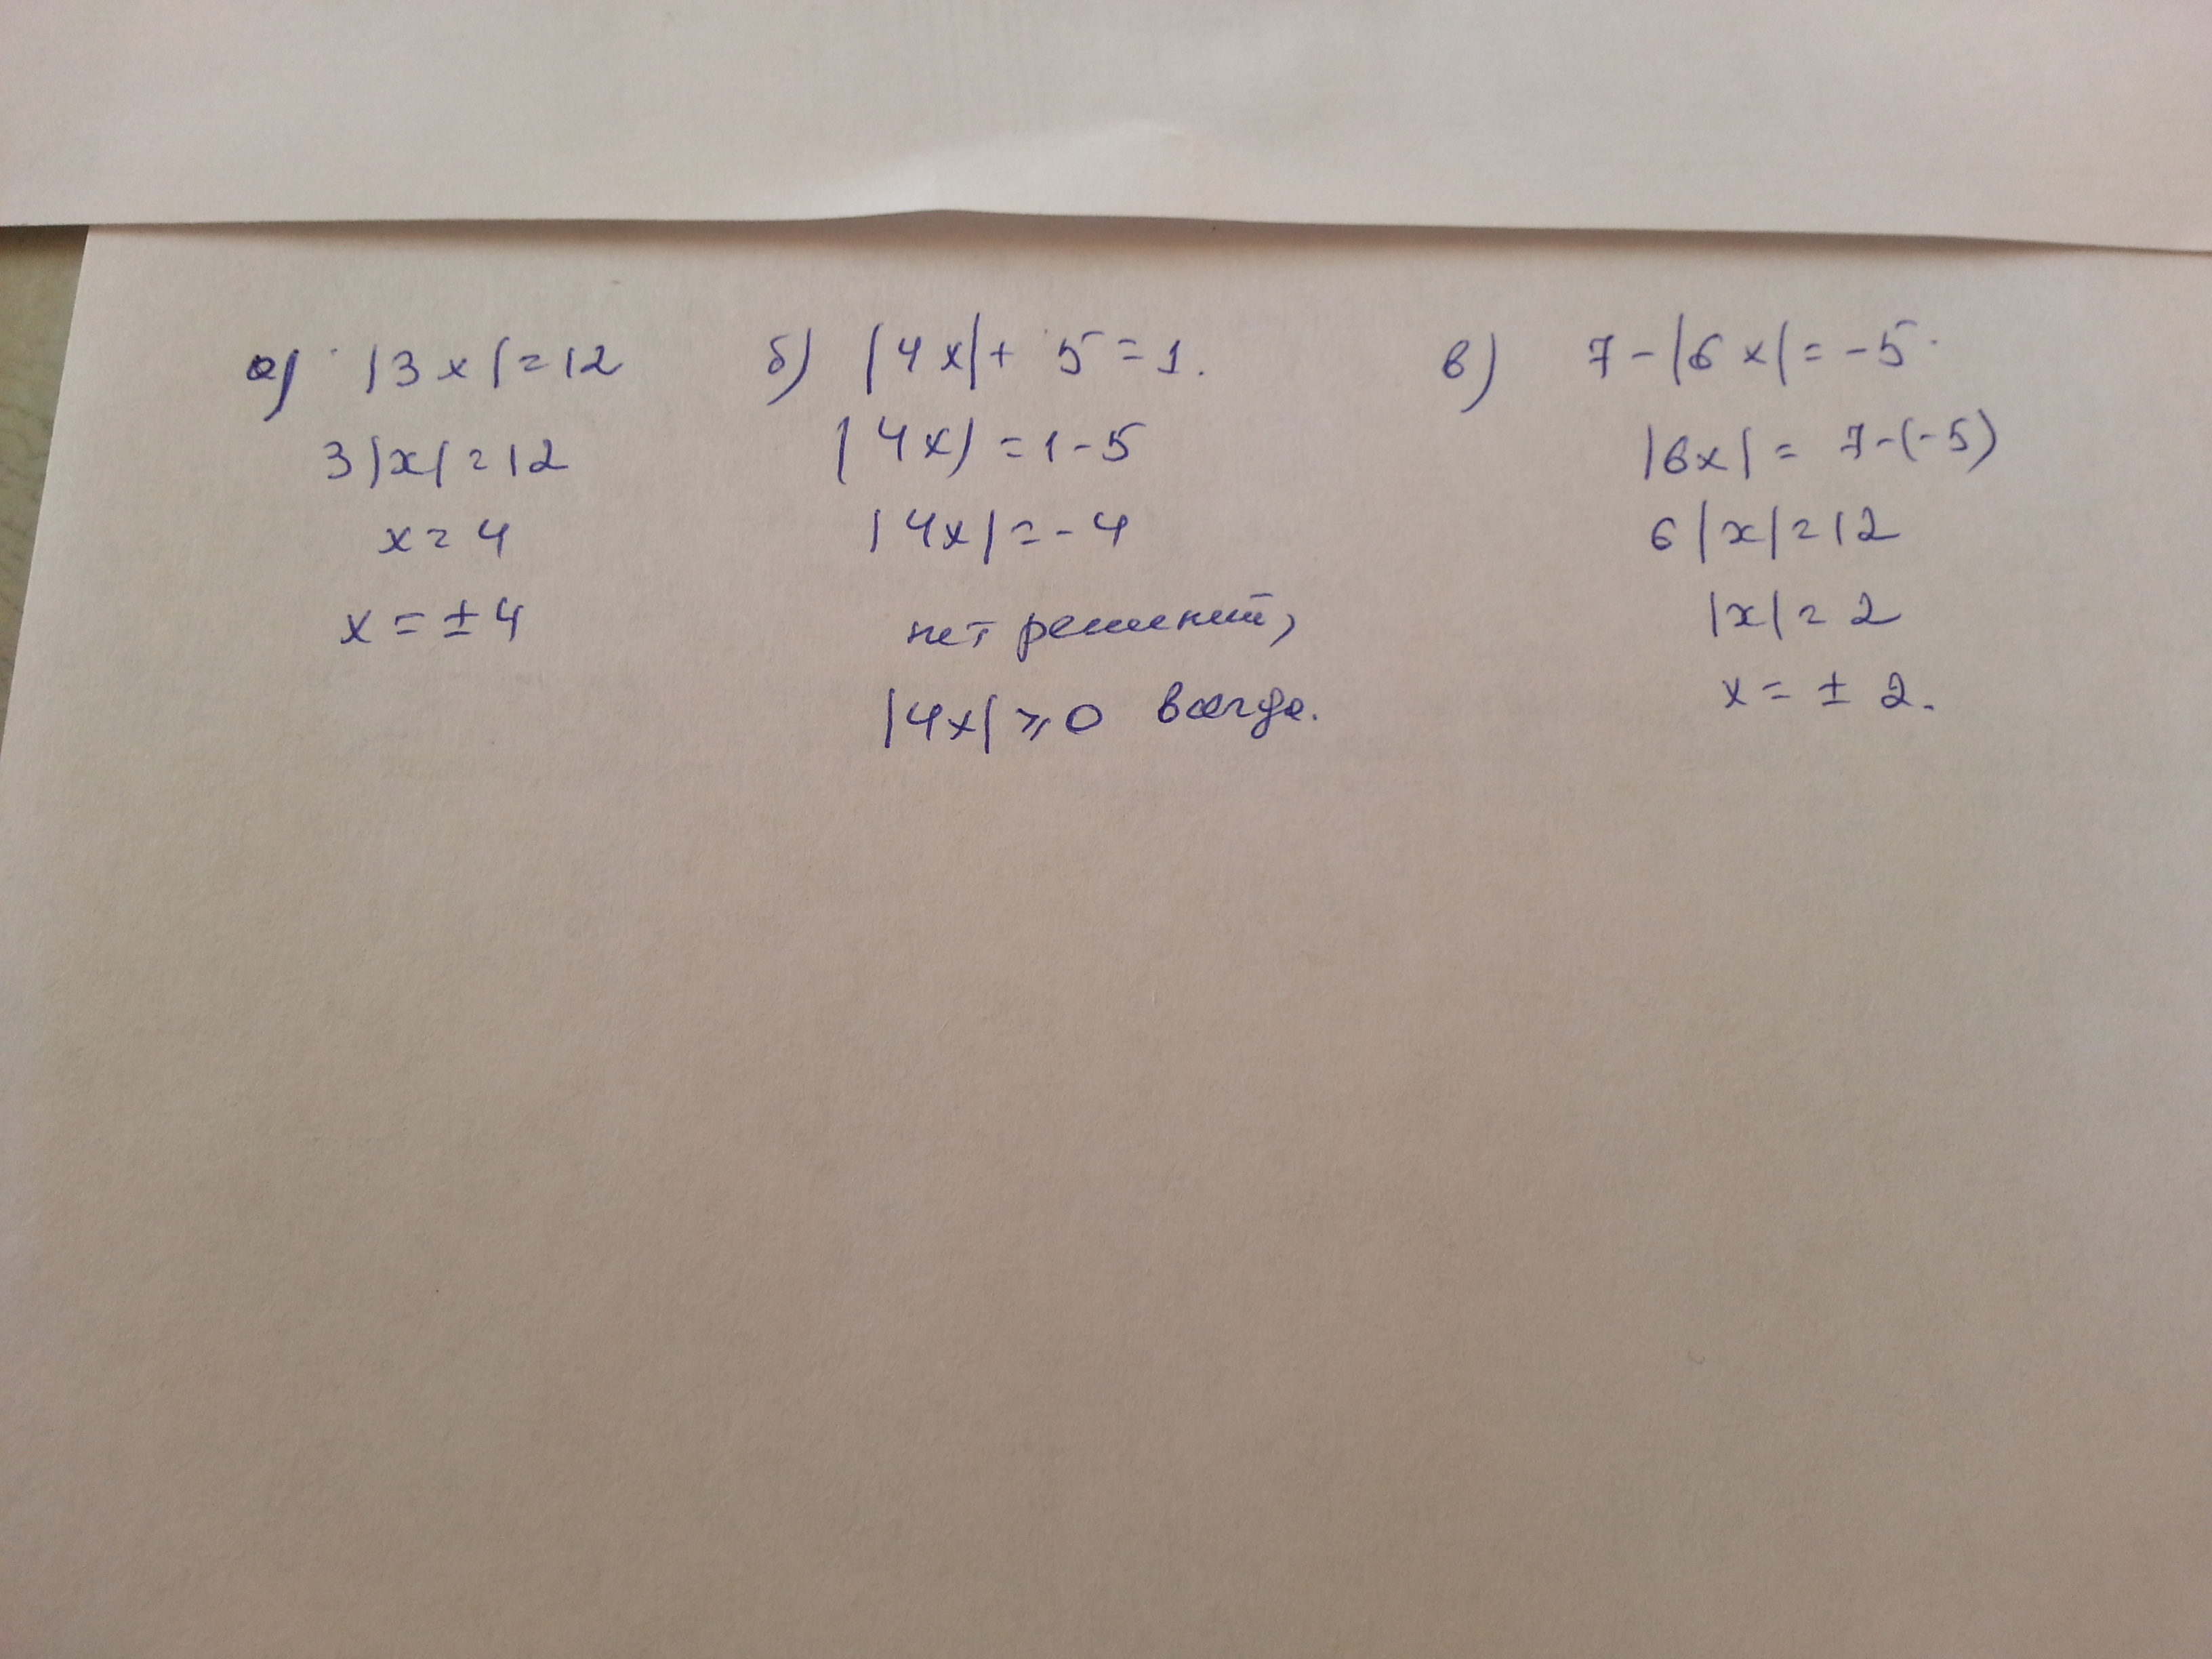 а) |3x|=12
3|x|=12
x=4
x=±4
б) |4x|+5=1.
|4x)=1-5
|4x|=-4
нет решений,
|4x|⩾0 всегда.
в) 7-|6x|=-5.
|6x|=7-(-5)
6|x|=12
|x|=2
x=±2.